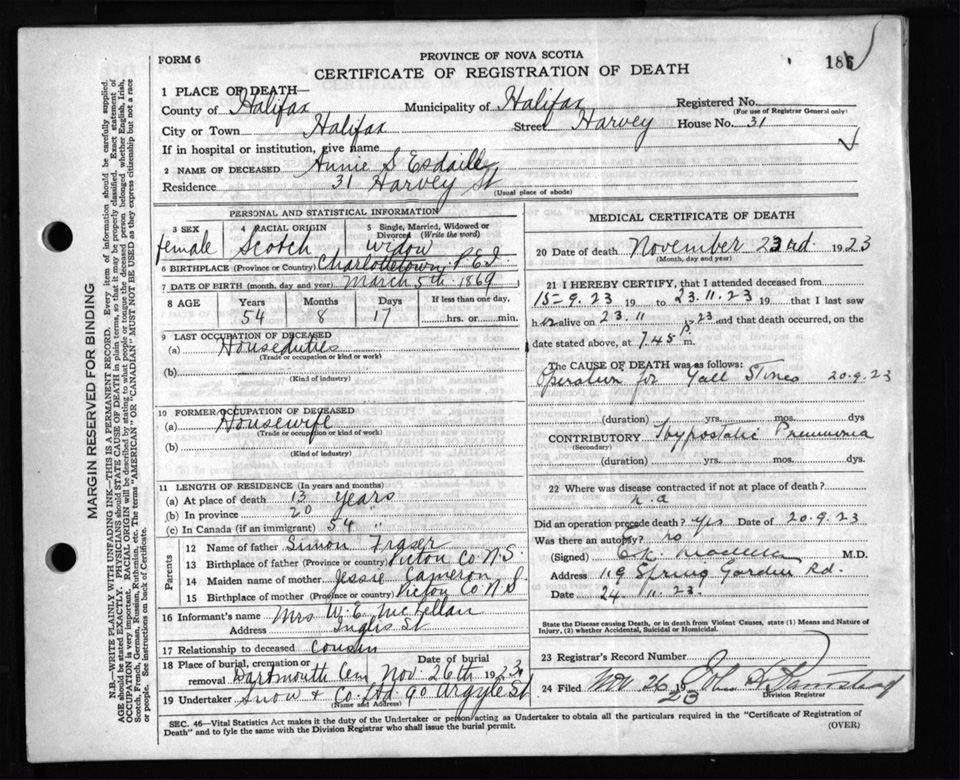 FORM 6
PROVINCE OF NOVA SCOTIA
CERTIFICATE OF REGISTRATION OF DEATH
1 PLACE OF DEATH—
County of Halifax Municipality of Halifax Registered No.
(For use of Registrar General only)
City or Town Halifax Street Harvey House No. 31
If in hospital or institution, give name
2 NAME OF DECEASED Annie S Esdaille
Residence 31 Harvey St
(Usual place of abode)
PERSONAL AND STATISTICAL INFORMATION
3 SEX female
4 RACIAL ORIGIN Scotch
5 Single, Married, Widowed or Divorced (Write the word) widow
6 BIRTHPLACE (Province or Country) Charlottetown P.E.I.
7 DATE OF BIRTH (month, day and year) March 5th 1869
8 AGE Years Months Days If less than one day,
54 8 17 hrs. or min.
9 LAST OCCUPATION OF DECEASED
(a) Houseduties
(Trade or occupation or kind of work)
(b)
(Kind of industry)
10 FORMER OCCUPATION OF DECEASED
(a) Housewife
(Trade or occupation or kind of work)
(b)
(Kind of industry)
11 LENGTH OF RESIDENCE (In years and months)
(a) At place of death 13 years
(b) In province 20 "
(c) In Canada (if an immigrant) 54 "
Parents
12 Name of father Simon Fraser
13 Birthplace of father (Province or country) Pictou Co N.S.
14 Maiden name of mother Jessie Cameron
15 Birthplace of mother (Province or country) Pictou Co N S
16 Informant's name Mrs W. E. McKellan
Address Inglis St
17 Relationship to deceased cousin
18 Place of burial, cremation or removal Dartmouth Cem
Date of burial Nov 26th 1923
19 Undertaker Snow & Co. Ltd 90 Argyle St
(Name and Address)
MEDICAL CERTIFICATE OF DEATH
20 Date of death November 23rd 1923
(Month, day and year)
21 I HEREBY CERTIFY, that I attended deceased from
15-9.23 19 to 23.11.23 19 that I last saw
h alive on 23.11 1923 and that death occurred, on the
date stated above, at 7.45 P m.
The CAUSE OF DEATH was as follows:
Operation for Gall Stones 20.9.23
(duration) yrs. mos. dys
CONTRIBUTORY Hypostatic Pneumonia
(Secondary)
(duration) yrs. mos. dys.
22 Where was disease contracted if not at place of death?
n.a
Did an operation precede death? yes Date of 20.9.23
Was there an autopsy? no
(Signed) M.D.
Address 119 Spring Garden Rd.
Date 24.11.23.
State the Disease causing Death, or in death from Violent Causes, state (1) Means and Nature of
Injury, (2) whether Accidental, Suicidal or Homicidal.
23 Registrar's Record Number
24 Filed Nov 26 19 23 John
Division Registrar
SEC. 46—Vital Statistics Act makes it the duty of the Undertaker or person acting as Undertaker to obtain all the particulars required in the "Certificate of Registration of
Death" and to fyle the same with the Division Registrar who shall issue the burial permit.
(OVER)
MARGIN RESERVED FOR BINDING
N.B.—WRITE PLAINLY WITH UNFADING INK—THIS IS A PERMANENT RECORD. Every item of information should be carefully supplied.
AGE should be stated EXACTLY. PHYSICIANS should STATE CAUSE OF DEATH in plain terms, so that it may be properly classified. Exact statement of
OCCUPATION is very important. RACIAL ORIGIN will be described by stating to what people or tongue the deceased person belonged whether English, Irish,
Scotch, French, German, Russian, Ruthenian, etc. The terms "AMERICAN" OR "CANADIAN" MUST NOT BE USED as they express citizenship but not a race
or people. See instructions on back of Certificate.